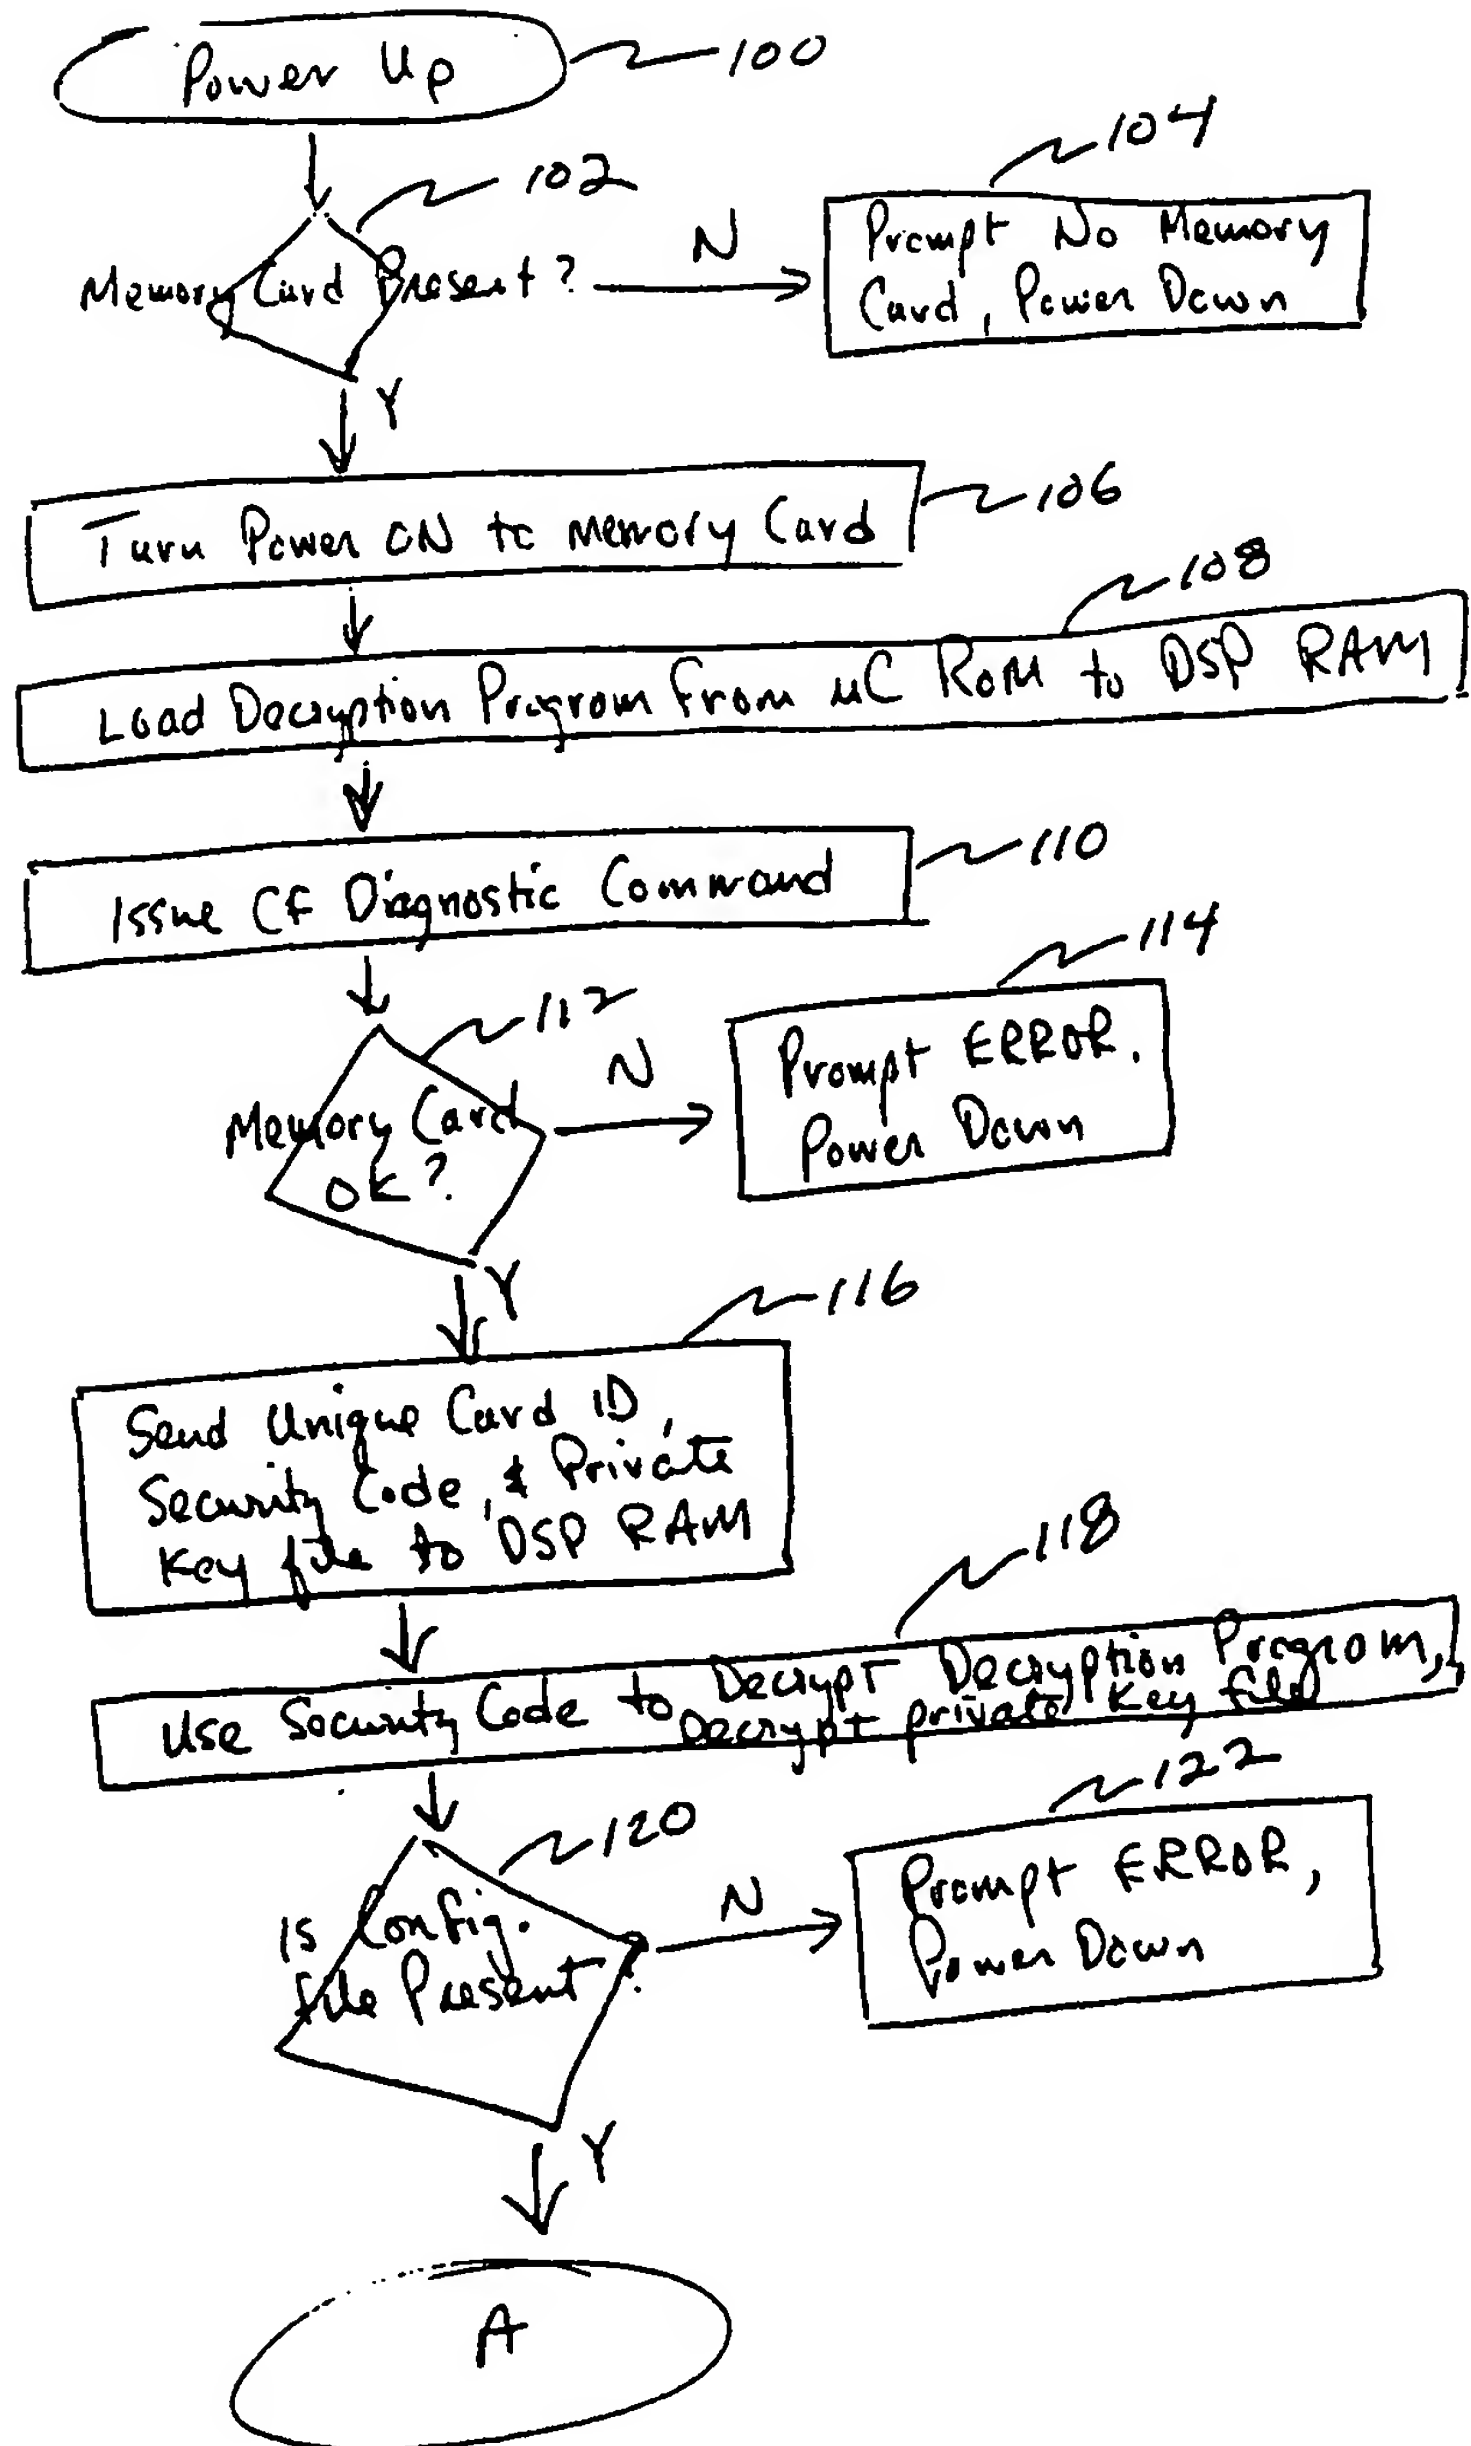 Power Up
100
102
Memory Card Present?
N
104
Prompt No Memory
Card, Power Down
Y
Turn Power ON to Memory Card
106
108
Load Decryption Program from uC ROM to DSP RAM
Issue CF Diagnostic Command
110
112
Memory Card
OK?
N
114
Prompt ERROR.
Power Down
Y
116
Send Unique Card ID,
Security Code, & Private
Key file to DSP RAM
118
Use Security Code to Decrypt Decryption Program,
Decrypt private key file
120
Is Config.
file Present?
N
122
Prompt ERROR,
Power Down
Y
A